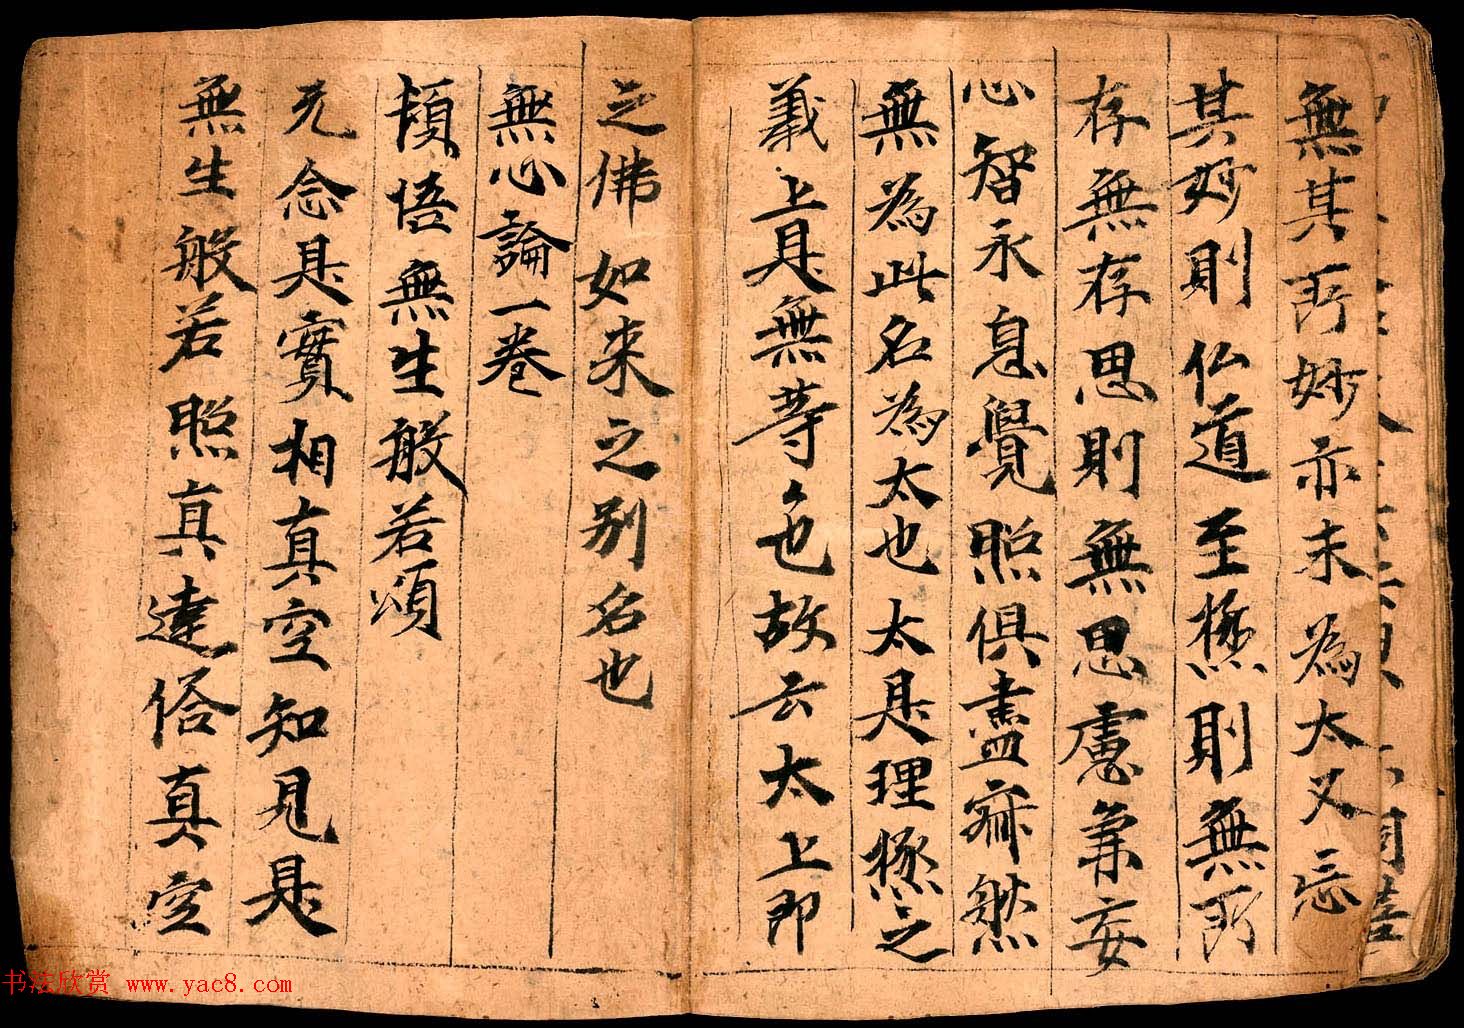 無其所妙亦未為太又忘
其妙則仏道至極則無所
存無存思則無思慮兼妄
心智永息覺照俱盡寂然
無為此名為太也太是理極之
義上是無等色也故云太上即
之佛如来之别名也
無心論一卷
頓悟無生般若頌
无念是實相真空知見是
無生般若照真達俗真空
书法欣赏 www.yac8.com